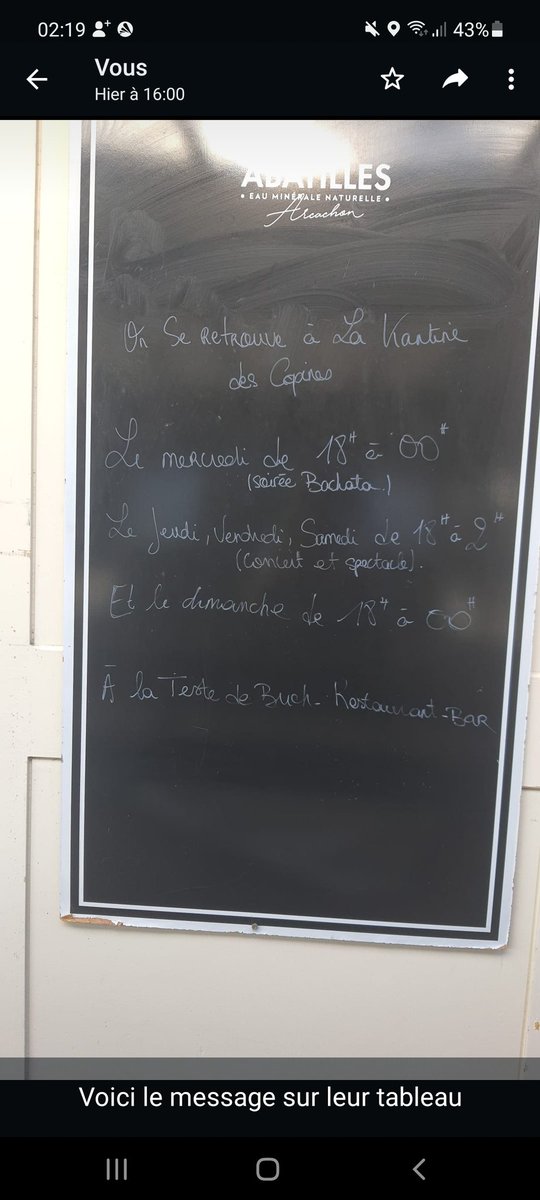 02:19
43%
Vous
Hier à 16:00
ABATILLES
• EAU MINÉRALE NATURELLE •
Arcachon
On se retrouve à La Kantine
des Copines
Le mercredi de 18H à 00H
(soirée Bachata)
Le Jeudi, Vendredi, Samedi de 18H à 2H
(concert et spectacle).
Et le dimanche de 18H à 00H
À la Teste de Buch - Restaurant - BAR
Voici le message sur leur tableau